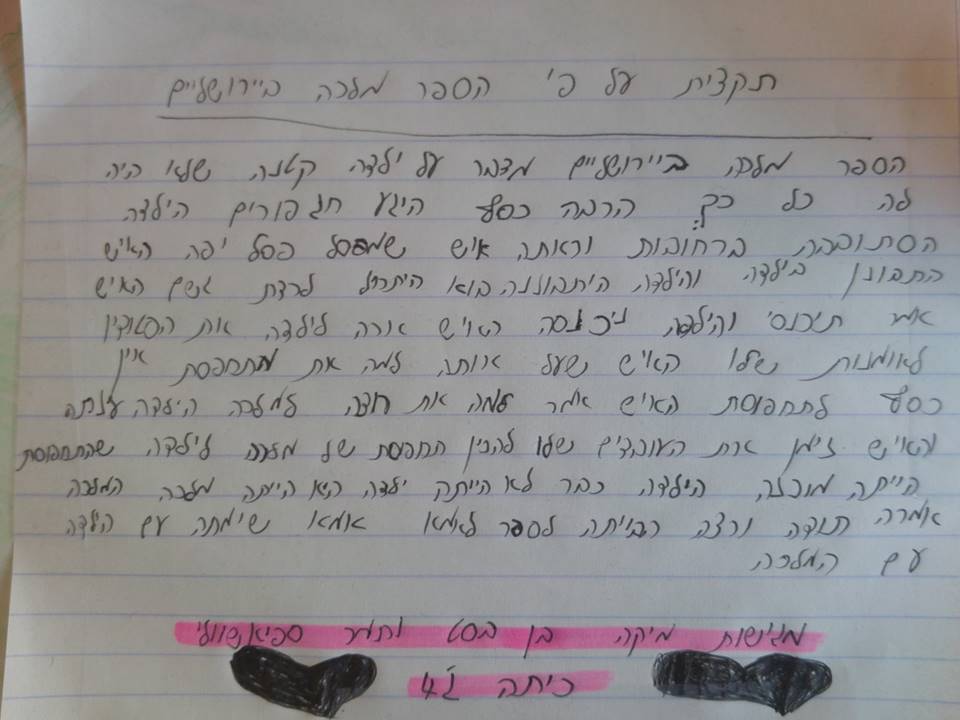 תקצית על פי הספר מלכה ביירושליים
הספר מלכה ביירושליים מדבר על ילדה קטנה שלא היה
לה כל כך הרבה כסף היגע חג פורים הילדה
הסתובבה ברחובות וראתה איש שמפסל פסל יפה האיש
התבונן בילדה והילדה היתבוננה בוא היתחיל לרדת גשם האיש
אמר תיכנסי והילדה ניכנסה האיש ארה לילדה את הסטודיו
לאומנות שלו האיש שעל אותה למה את מתחפסת אין
כסף לתחפוסת האיש אמר למה את רוצה למלכה הילדה ענתה
והאיש זימן את העובדים שלו להכין תחפוסת של מלכה לילדה שהתחפוסת
הייתה מוכנה הילדה כבר לא הייתה ילדה היא הייתה מלכה המלכה
אומרה תודה ורצה הבייתה לספר לאמא אמא שימחה עם הילדה
עם המלכה
מגישות מיקה בן בסט ותמר
כיתה ג'4